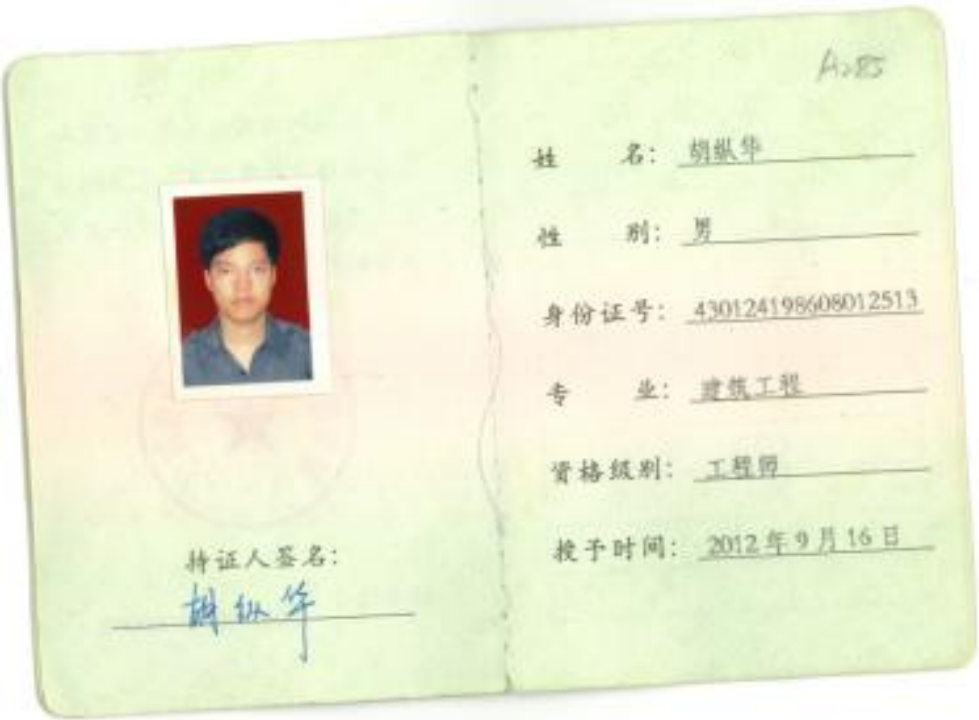 持证人签名：
胡纵华
A285
姓名：胡纵华
性别：男
身份证号：430124198608012513
专业：建筑工程
资格级别：工程师
授予时间：2012年9月16日